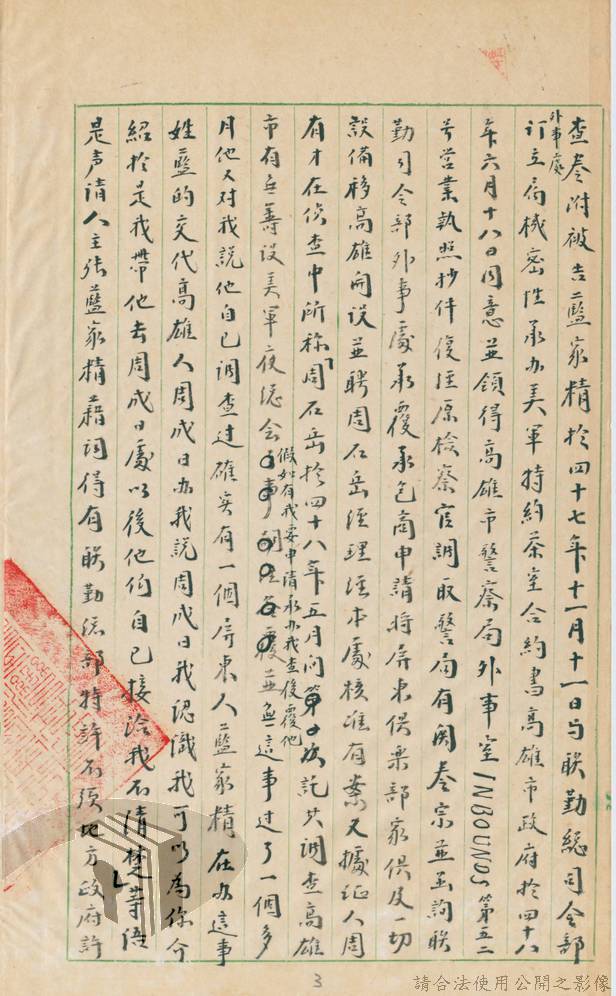 查卷附被告藍家精於四十七年十一月十一日与联勤總司令部
外事處
订立局機密性承办美軍特約茶室合約書高雄市政府於四十八
年六月十八日同意並領得高雄市警察局外事室INBOUNDS第五二
号营業执照抄件復經原检察官調取警局有関卷宗並函詢联
勤司令部外事處承覆承包商申請将屏東俱楽部家俱及一切
設備移高雄開设並聘周石岳經理經本處核准有案又據证人周
有才在侦查中所称「周石岳於四十八年五月间託其調查高雄
市有無籌设美軍夜總会
假如有我要申请承办我查後覆他
並無這事过了一個多
月他又对我說他自己調查过確实有一個屏東人藍家精在办這事
姓藍的交代高雄人周成日办我説周成日我認識我可以為你介
紹於是我帶他去周成日處以後他们自己接洽我不清楚」等语
是声请人主张藍家精藉詞得有联勤總部特許不须地方政府許
3
請合法使用公開之影像